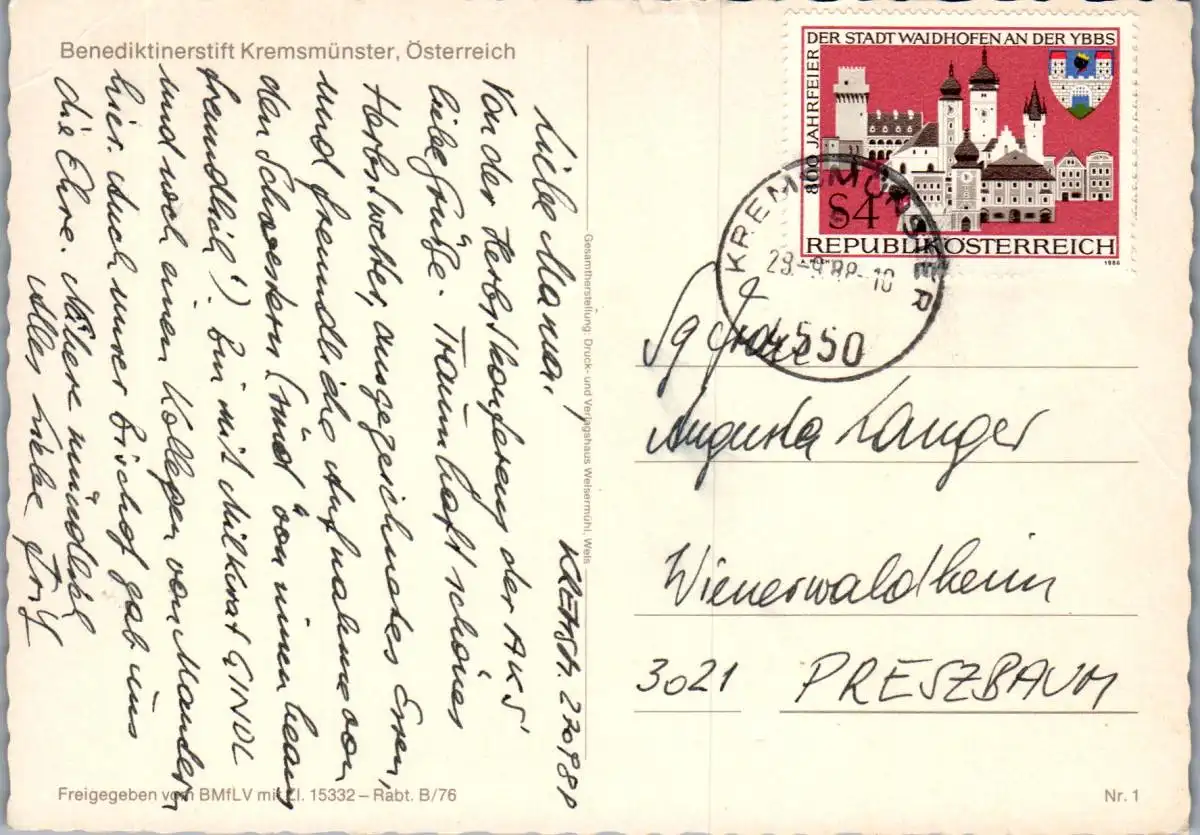 Benediktinerstift Kremsmünster, Österreich
Kremsm. 270988
Liebe Mama!
Von der Herbstkonferenz der AKS
liebe Grüße. Traumhaft schönes
Herbstwetter, ausgezeichnetes Essen,
und freundliche Aufnahme von
den Schwestern (sind von innen heraus
freundlich!) Bin mit Militkurat GINDL
und noch einen Kollegen von Mautern
hier. Auch unser Bischof gab uns
die Ehre. Nähere mündlich
alles Liebe Fritz
Gesamtherstellung: Druck- und Verlagshaus Welsermühl, Wels
Freigegeben vom BMfLV mit Zl. 15332 – Rabt. B/76
800 JAHRFEIER DER STADT WAIDHOFEN AN DER YBBS
S4
REPUBLIK ÖSTERREICH
1986
KREMSMÜNSTER
28.-9.88-10
4550
Augusta Langer
Wienerwaldheim
3021 PRESZBAUM
Nr. 1